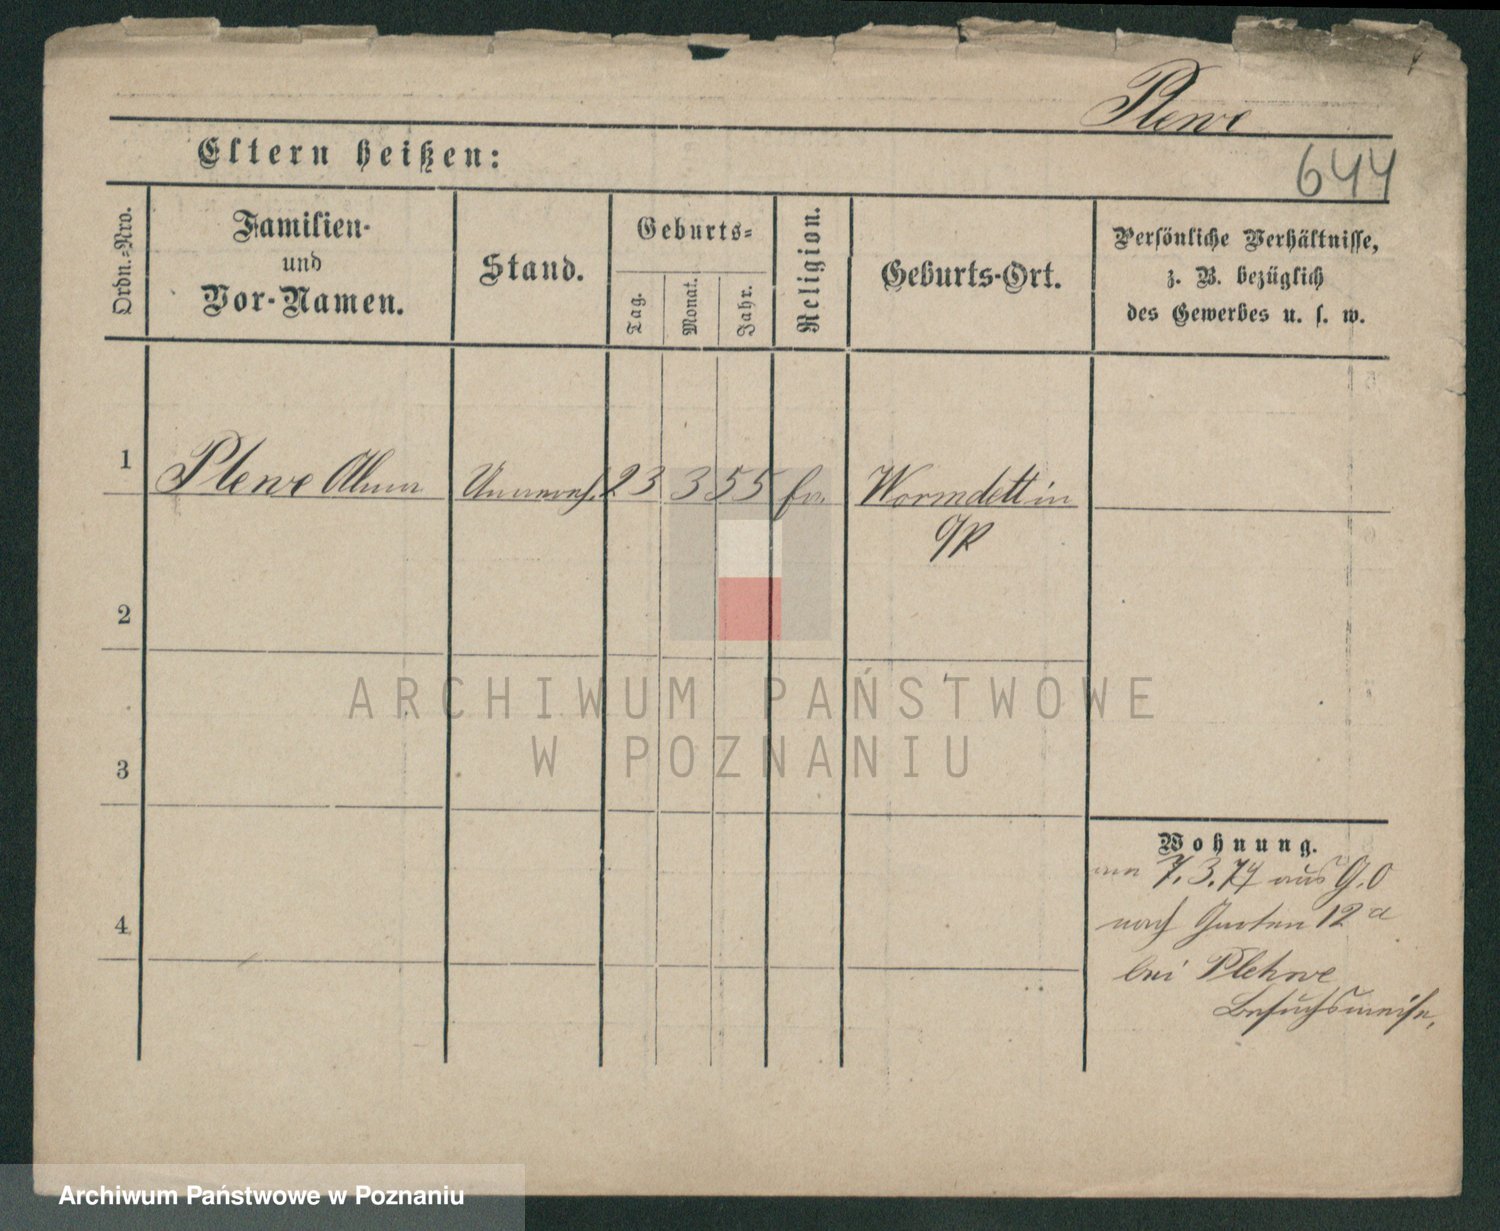 Plewe
Eltern heißen:
644
Ordn.-Nro.
Familien-
und
Vor-Namen.
Stand.
Geburts-
Tag.
Monat.
Jahr.
Religion.
Geburts-Ort.
Persönliche Verhältnisse,
z. B. bezüglich
des Gewerbes u. s. w.
1
Plewe
Unvereh.
23
3
55
Wormditt in
2
3
4
Wohnung.
7. 3. 74 aus G. O
nach Garten 12a
bei Plehwe
Besuchsweise,
ARCHIWUM PAŃSTWOWE
W POZNANIU
Archiwum Państwowe w Poznaniu